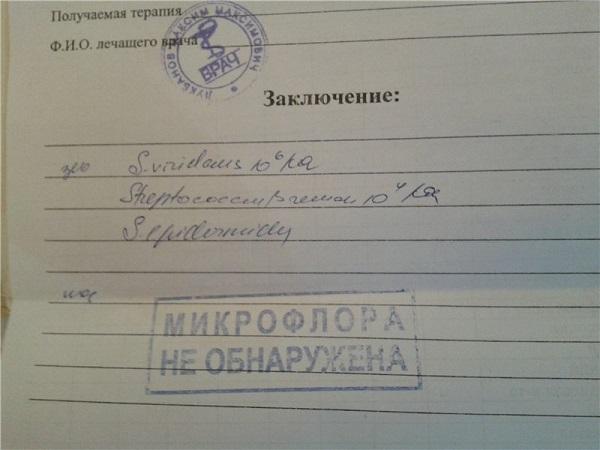 Получаемая терапия
Ф.И.О. лечащего врача
ЛУКБАНОВ МАКСИМ МАКСИМОВИЧ
ВРАЧ
Заключение:
зев S. viridans 10⁶ КОЕ
Streptococcus 10⁴
S. epidermidis
нос
МИКРОФЛОРА
НЕ ОБНАРУЖЕНА